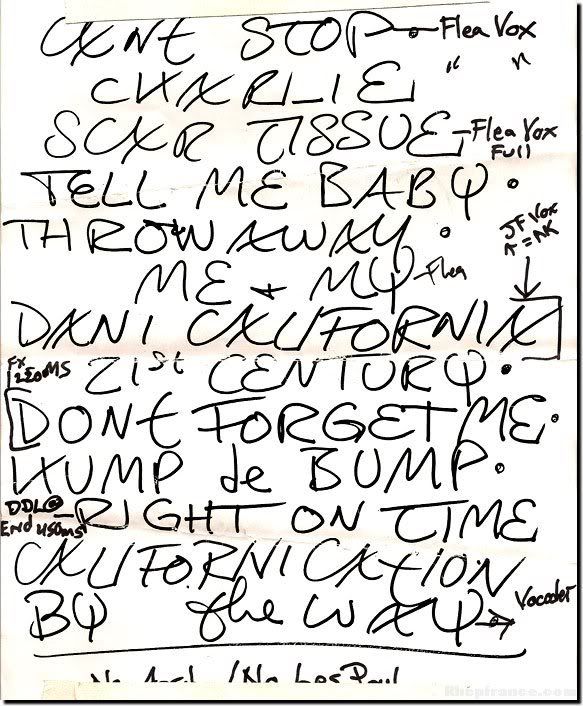 CANt STOP - Flea Vox
CHARLIE " "
SCAR TISSUE - Flea Vox Full
TELL ME BABY .
THROW AWAY .
JF Vox
ME + MY - Flea
DANI CALIFORNIA
21st CENTURY .
FX
250MS
DONt FORGET ME .
HUMP de BUMP .
DDL@ END 450ms - RIGHT ON TIME
CALIFORNICAtION
BY the WAY → Vocoder
Rhcpfrance.com